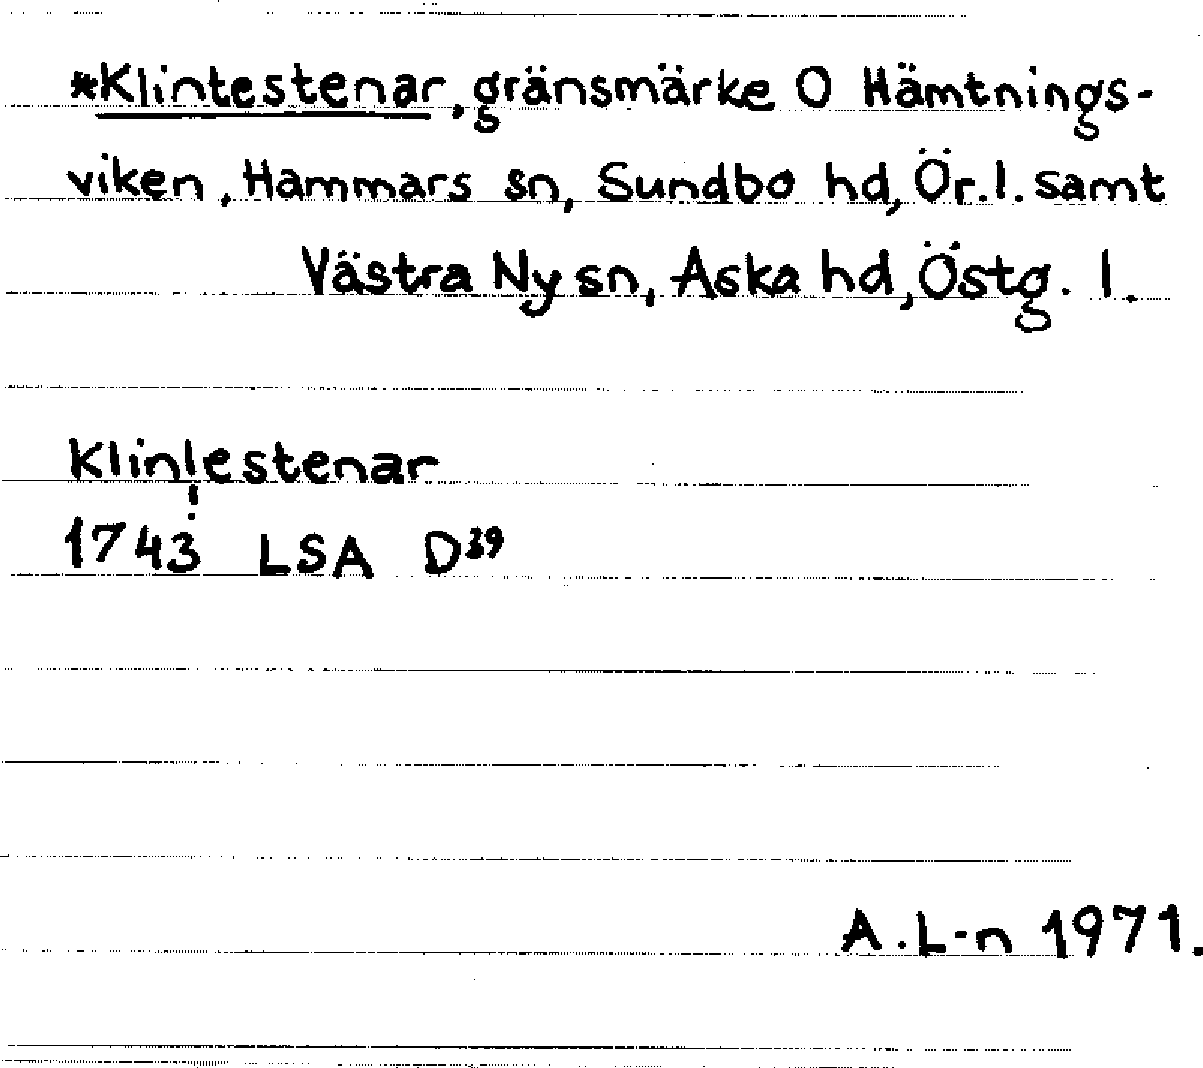 *Klintestenar, gränsmärke O Hämtnings-
viken, Hammars sn, Sundbo hd, Ör. l. samt
Västra Ny sn, Aska hd, Östg. l.
Klinlestenar
!
1743 LSA D39
A. L-n 1971.